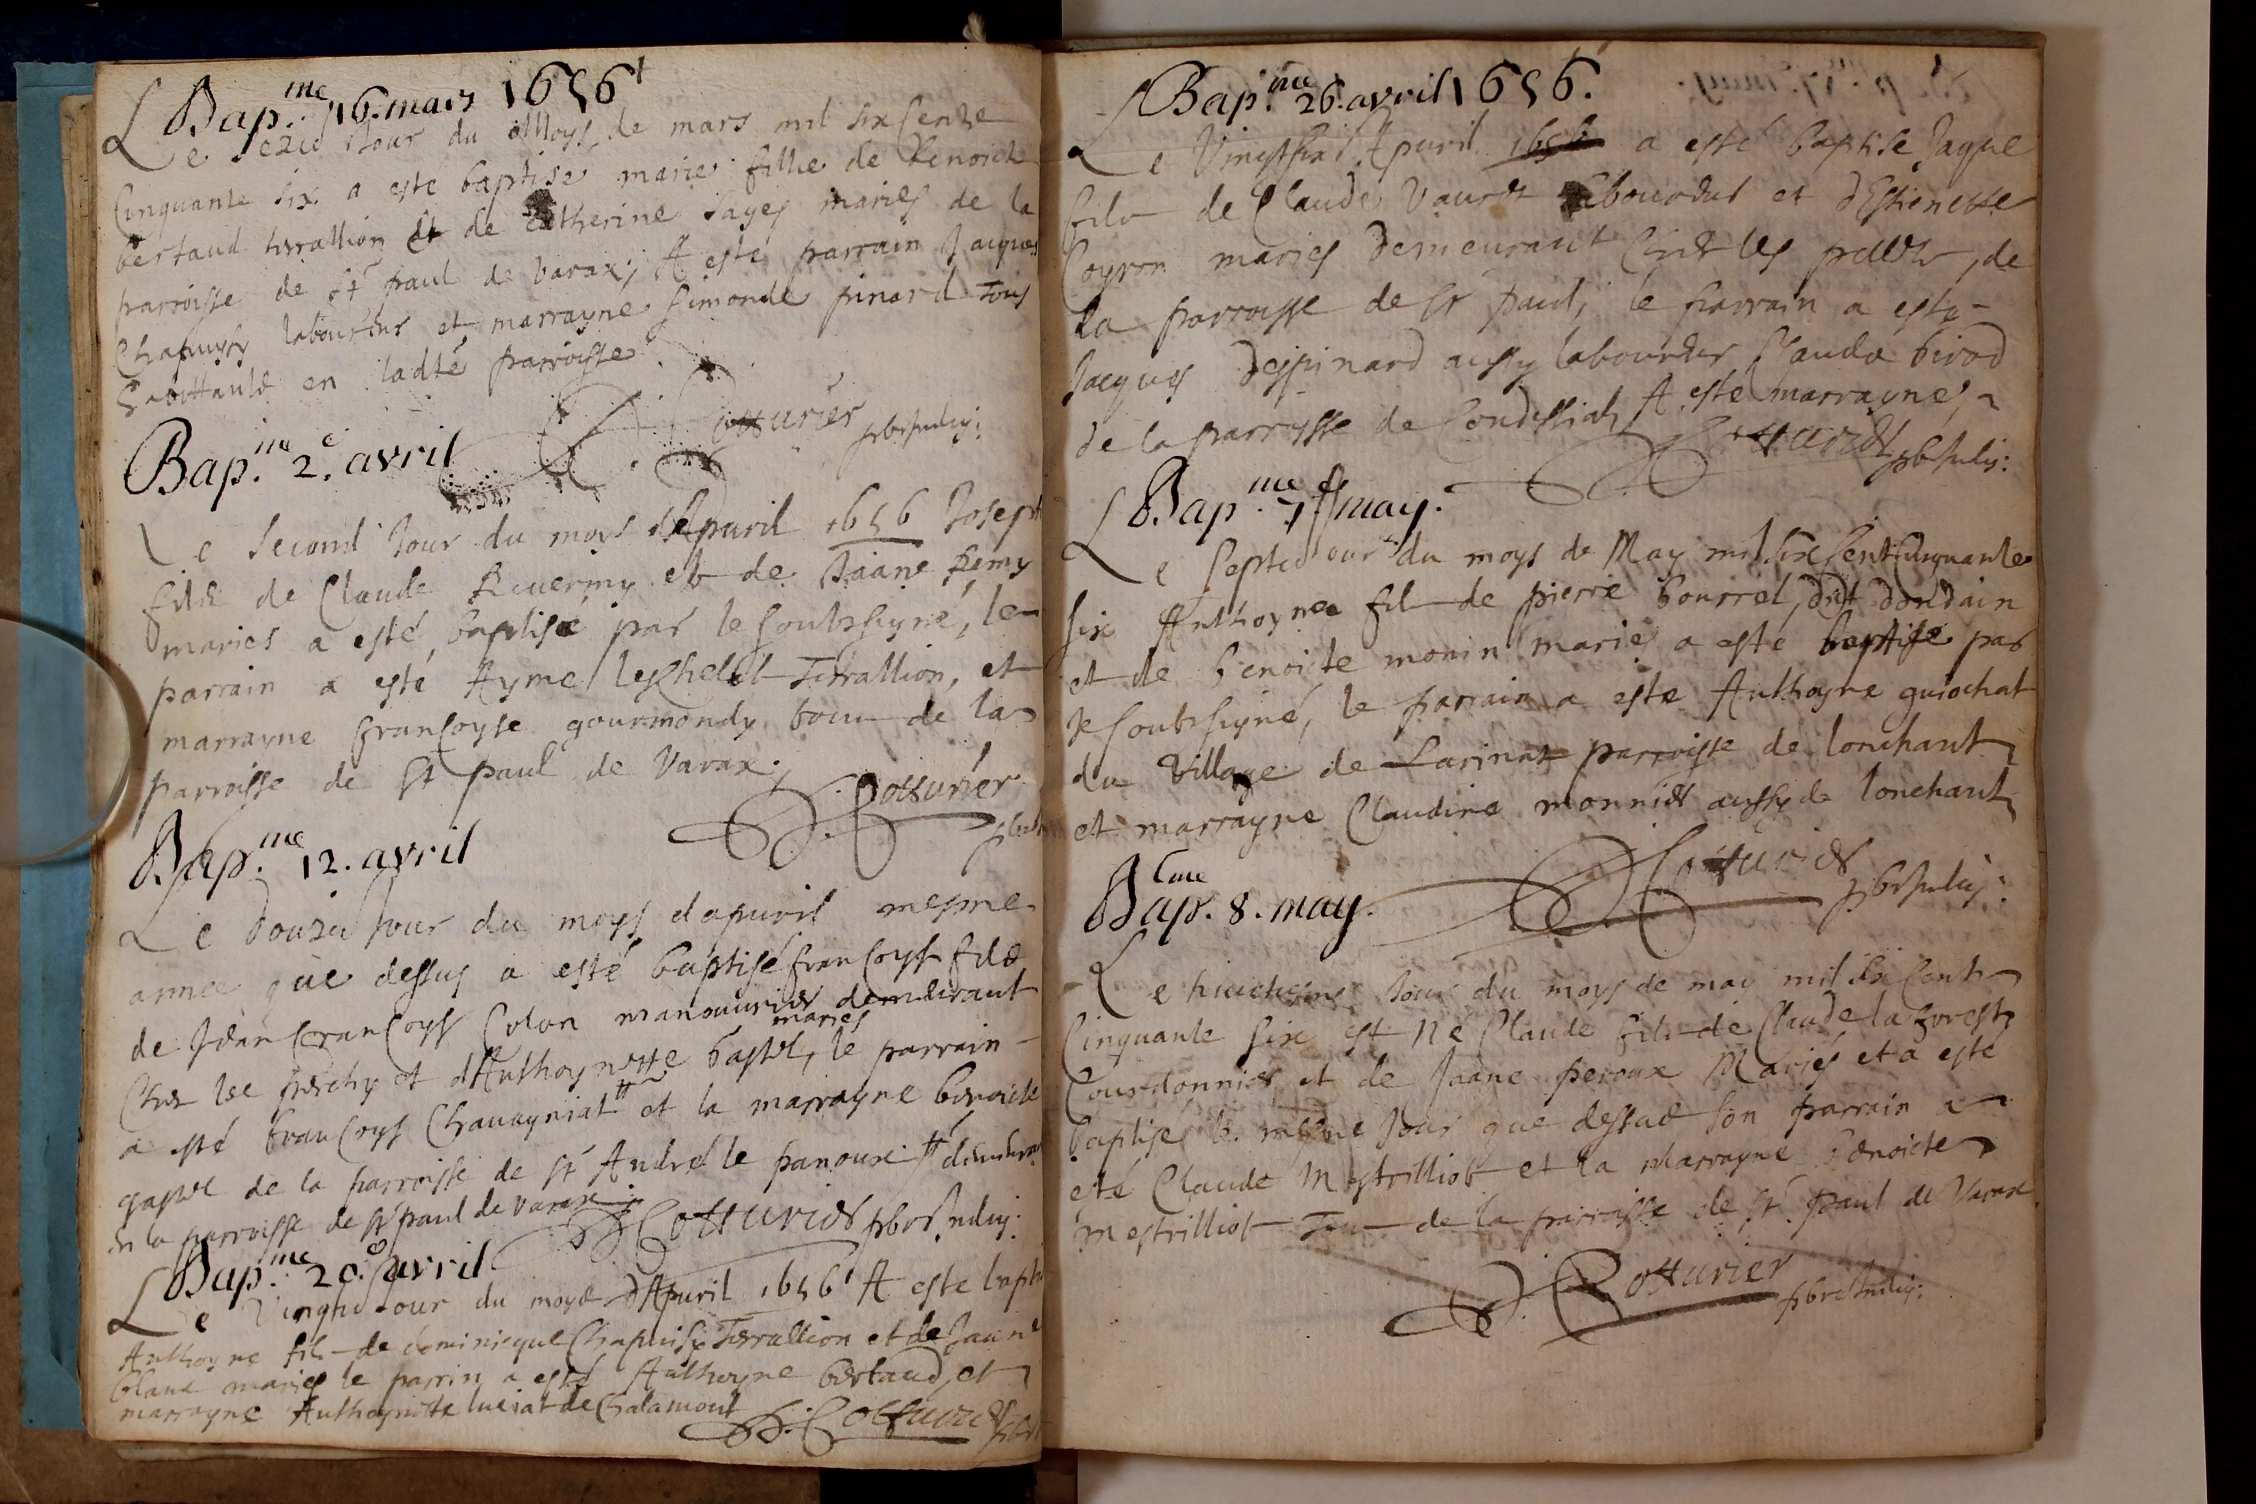 Bap.me 16. mars 1656
Le Jour du Moys de mars mil six Cents
Cinquante six a este baptise marie fillie de Benoict
bertaud terrallion et de Catherine Sages maries de la
parroisse de St paul de Varax, A esté parrain Jacques
Chapuisy laboureur et marrayne Simonde pinard Tous
en ladte parroisse
Cotturier
Bap.me 2e. avril
Le Second Jour du moys dApuril 1656 Joseph
filz de Claude et de Jaane Remy
maries a esté baptisé par le soubsigné, le
parrain a esté Ayme Terrallion, et
marrayne françoyse gourmondy tous de la
parroisse de St paul de Varax.
Cotturier
Bap.me 12. avril
Le Jour du moys dapuril mesme
annee que dessus a esté baptisé françoys filz
de Jean françoys Colon manouurier demeurant
maries
Chez les et dAnthoynette bastel, le parrain
a esté françoys Chauagniat et la marrayne benoicte
gastel de la parroisse de St André le panoux
en la parroisse de St paul de varax
Cotturier pbre Induy:
Bap.me 20e. avril
Le Jour du moys dApuril 1656 A este
Anthoyne filz de dominique Chapuisy Terrallion et de Jaane
blanc maries le parrin a esté Anthoyne bertaud, et
marrayne Anthoynette luciat de Chalamont
Cotturier
Bap.me 26. avril 1656.
Le Vingtsix Apuril 1656 a esté baptise Jaque
filz de Claude laboureur et dEstienette
Coyron maries demeurant Chez les de
la parroisse de St paul, le parrain a esté
Jacques despinard aussy laboureur Claude birod
de la parroysse de Condessiat A esté marrayne,
Cotturier pbre Induy:
Bap.me 7e may.
Le Jour du moys de May mil six Cent Cinquante
six Anthoyne filz de pierre bourrel, dit dondain
et de benoiste monin maries a esté baptisé par
le soubsigné, le parrain a esté Anthoyne guiochat
du Village de Larinat parroisse de lonchant
et marrayne Claudine monnier aussy de lonchant
Cotturier pbre Induy:
Bap.tme 8. may.
Le huictiesme Jour du moys de may mil six Cent
Cinquante six est Né Claude filz de Claude la forest
Courdonnier et de Jaane peroux Mariés et a esté
baptisé le mesme Jour que dessus son parrain a
eté Claude Mestrilliot et la marrayne benoicte
mestrilliot Tous de la parroisse de St paul de Varax
Cotturier pbre Induy: